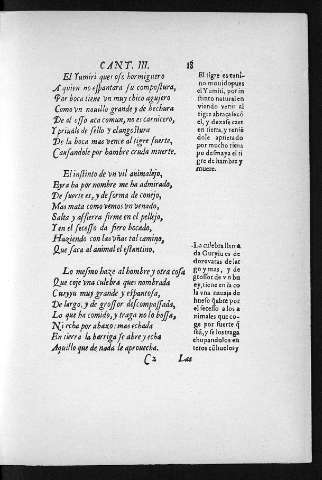 CANT. III. 18
El Yumiri ques osso hormiguero
A quien no espantara su compostura,
Por boca tiene vn muy chico agujero
Como vn nouillo grande y de hechura
De al osso ataca comun, no es carnicero,
Y priuals de sello y clangostura
De la boca mas vence al tigre fuerte,
Cansandole por hambre cruda muerte.
El instinto de vn vil animalejo,
Eyra ha por nombre me ha admirado,
De suerte es, y de forma de conejo,
Mas mata como vemos vn venado,
Salta y afsierra firme en el pellejo,
Y en el secesso da fiero bocado,
Haziendo con las vñas tal camino,
Que saca al animal el estantino.
Lo mesmo haze al hombre y otra cosa
Que coje vna culebra ques nombrada
Curyyu muy grande y espantosa,
De largo, y de grossor descompassada,
Lo que ha comido, y traga no lo bossa,
Ni echa por abaxo: mas echada
En tierra la barriga se abre y echa
Aquillo que de nada le aprouecha.
C2 Las
El tigre es tanti-
no mouido pues
el Yumiri, por in
stinto natural en
viendo venir al
tigre abraçalsco[]
el, y dexase caer
en tierra, y tenié
dole apretado
por mucho tiem
po desmaya el ti
gre de hambre y
muere.
La culebra llama
da Curyju es de
dozo varas de lar
go y mas, y de
grossor de vn bu
ey, tiene en la co
la vna nauaja de
hueso q̃ abre por
el secesso a los a
nimales que co-
ge por fuerte q̃
sea, y se los traga
chupandolos en
teros cõ hueslos y